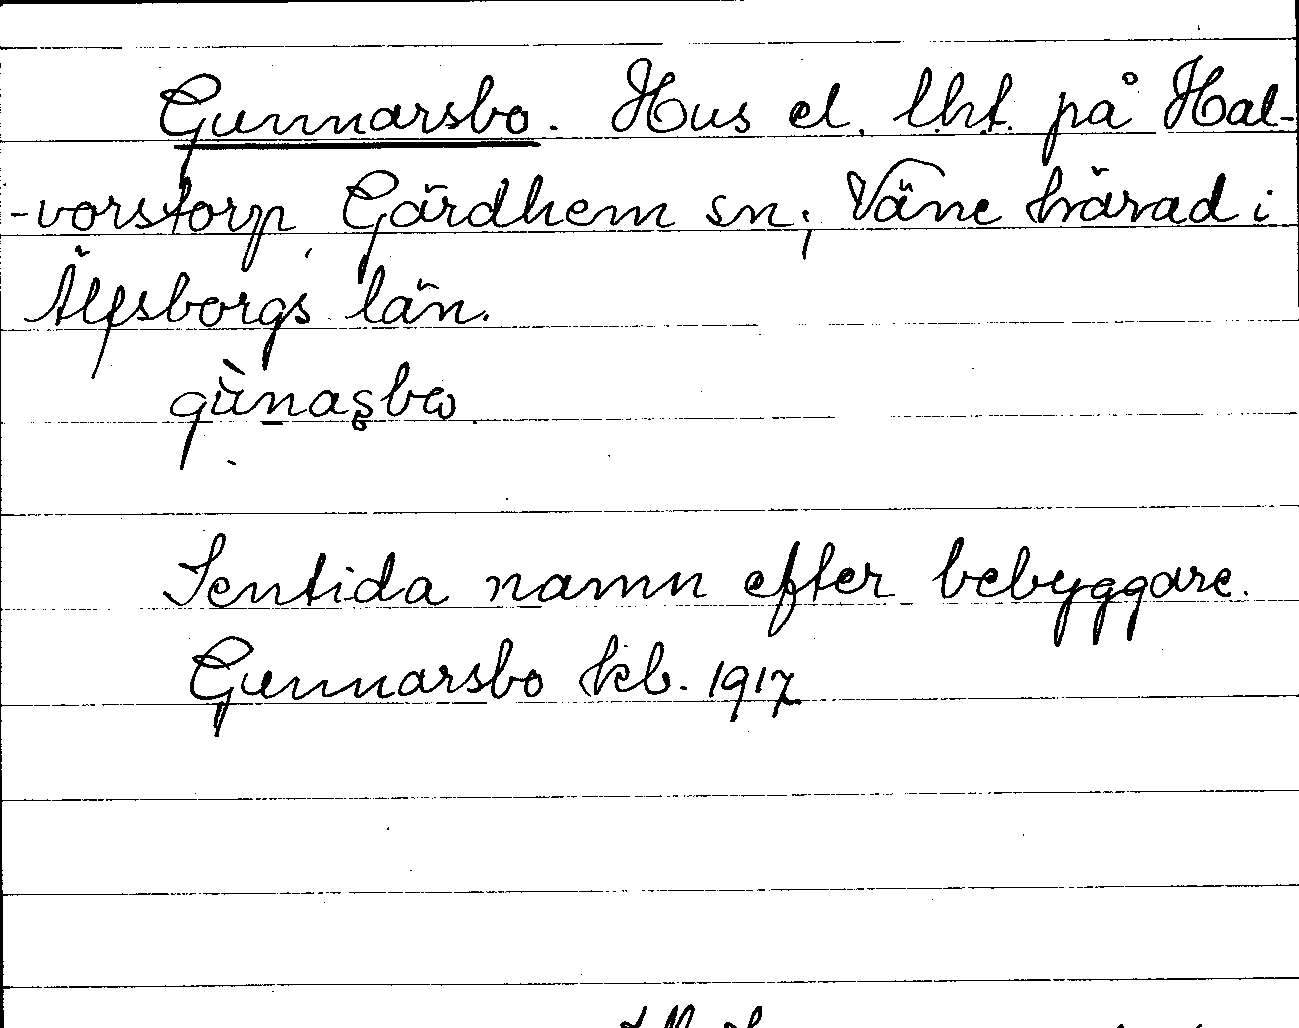 Gunnarsbo. Hus el. lht. på Hal-
-vorstorp, Gärdhem sn; Väne härad i
Älfsborgs län.
gùnaşbω.
Sentida namn efter bebyggare.
Gunnarsbo kb. 1917